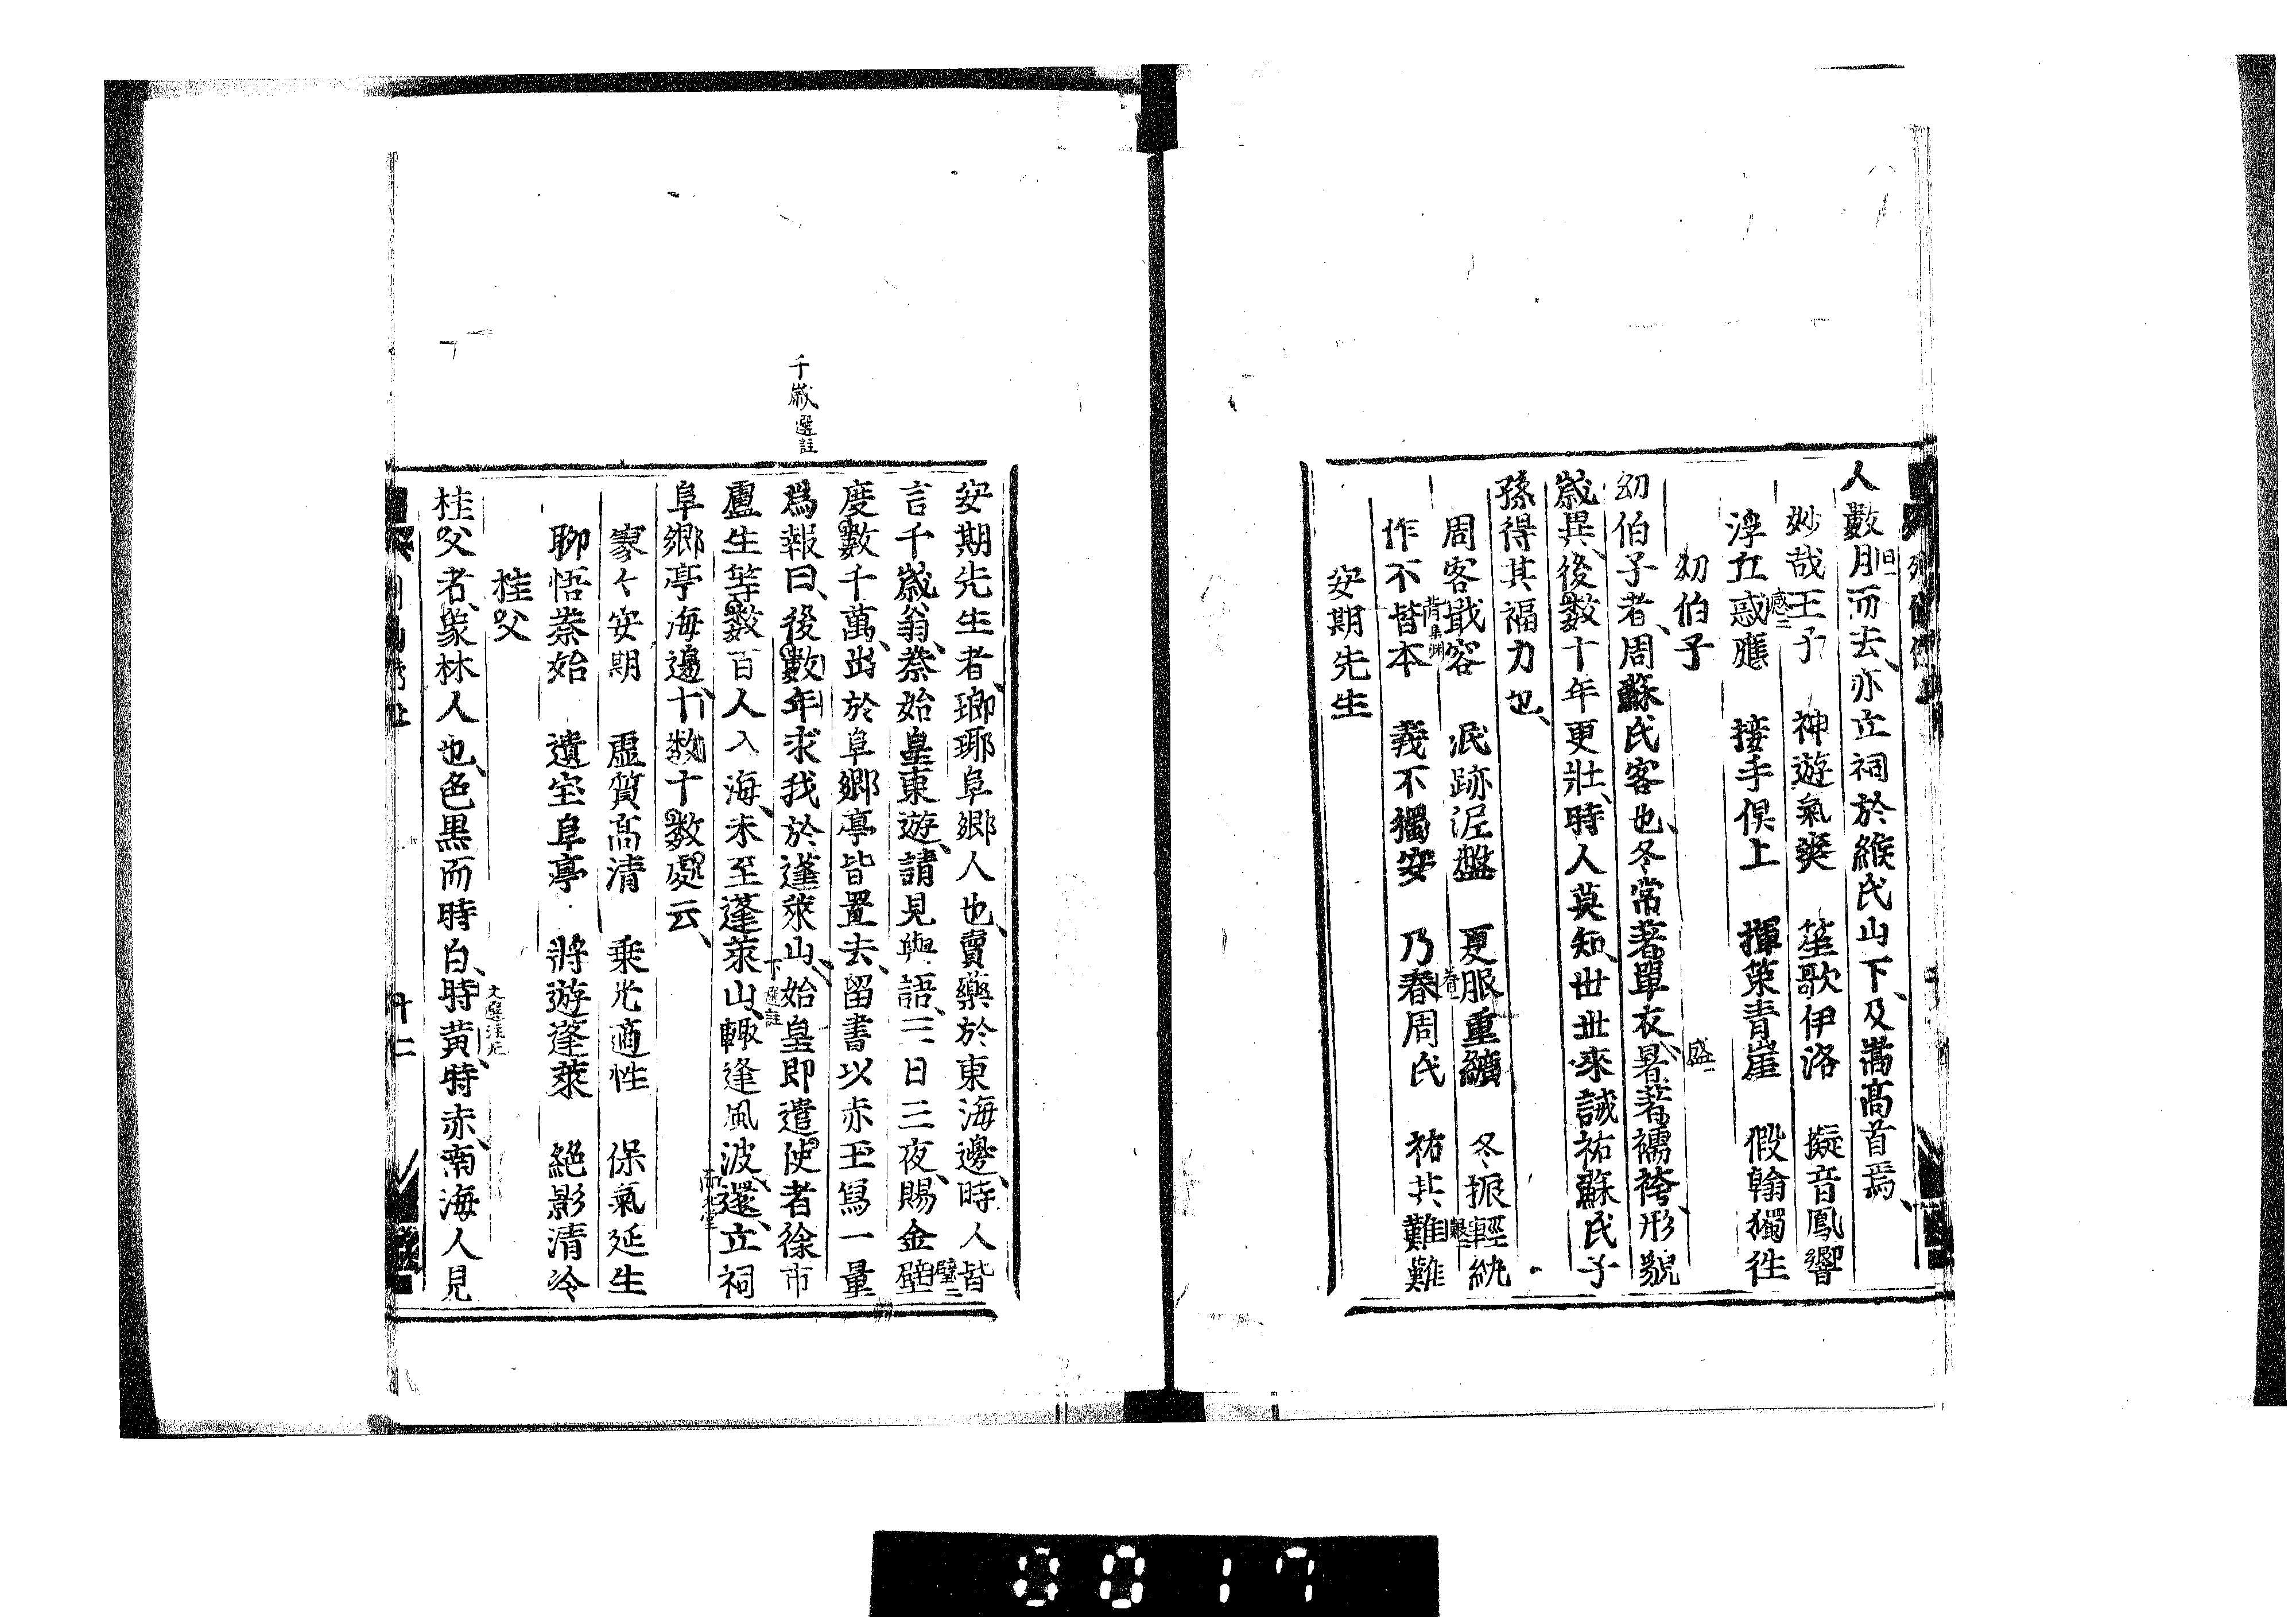 人數月而去亦立祠於緱氏山下及嵩高首焉
日
妙哉王子　神遊氣爽　笙歌伊洛　擬音鳳響
浮丘惑應　接手俱上　揮策青崖　假翰獨往
感
幼伯子
幼伯子者周蘇氏客也冬常著單衣暑著襦袴形貌
盛
歲異後數十年更壯時人莫知世世來誡祐蘇氏子
孫得其福力也
周客戢容　泯跡泥盤　夏服重纊　冬振輕紈
作不皆本　義不獨安　乃春周氏　祐其難難
背
眷
艱
安期先生
安期先生者瑯琊阜鄉人也賣藥於東海邊時人皆
言千歲翁秦始皇東遊請見與語三日三夜賜金壁
璧
度數千萬出於阜鄉亭皆置去留書以赤玉舄一量
爲報曰後數年求我於蓬萊山始皇即遣使者徐市
千歲選註
下選註
盧生等數百人入海未至蓬萊山輒逢風波還立祠
阜鄉亭海邊十數十數處云
寥々安期　虛質高清　乘光適性　保氣延生
聊悟秦始　遺宝阜亭　將遊蓬萊　絕影清泠
桂父
桂父者象林人也色黑而時白時黄時赤南海人見
文選注
十二
0017